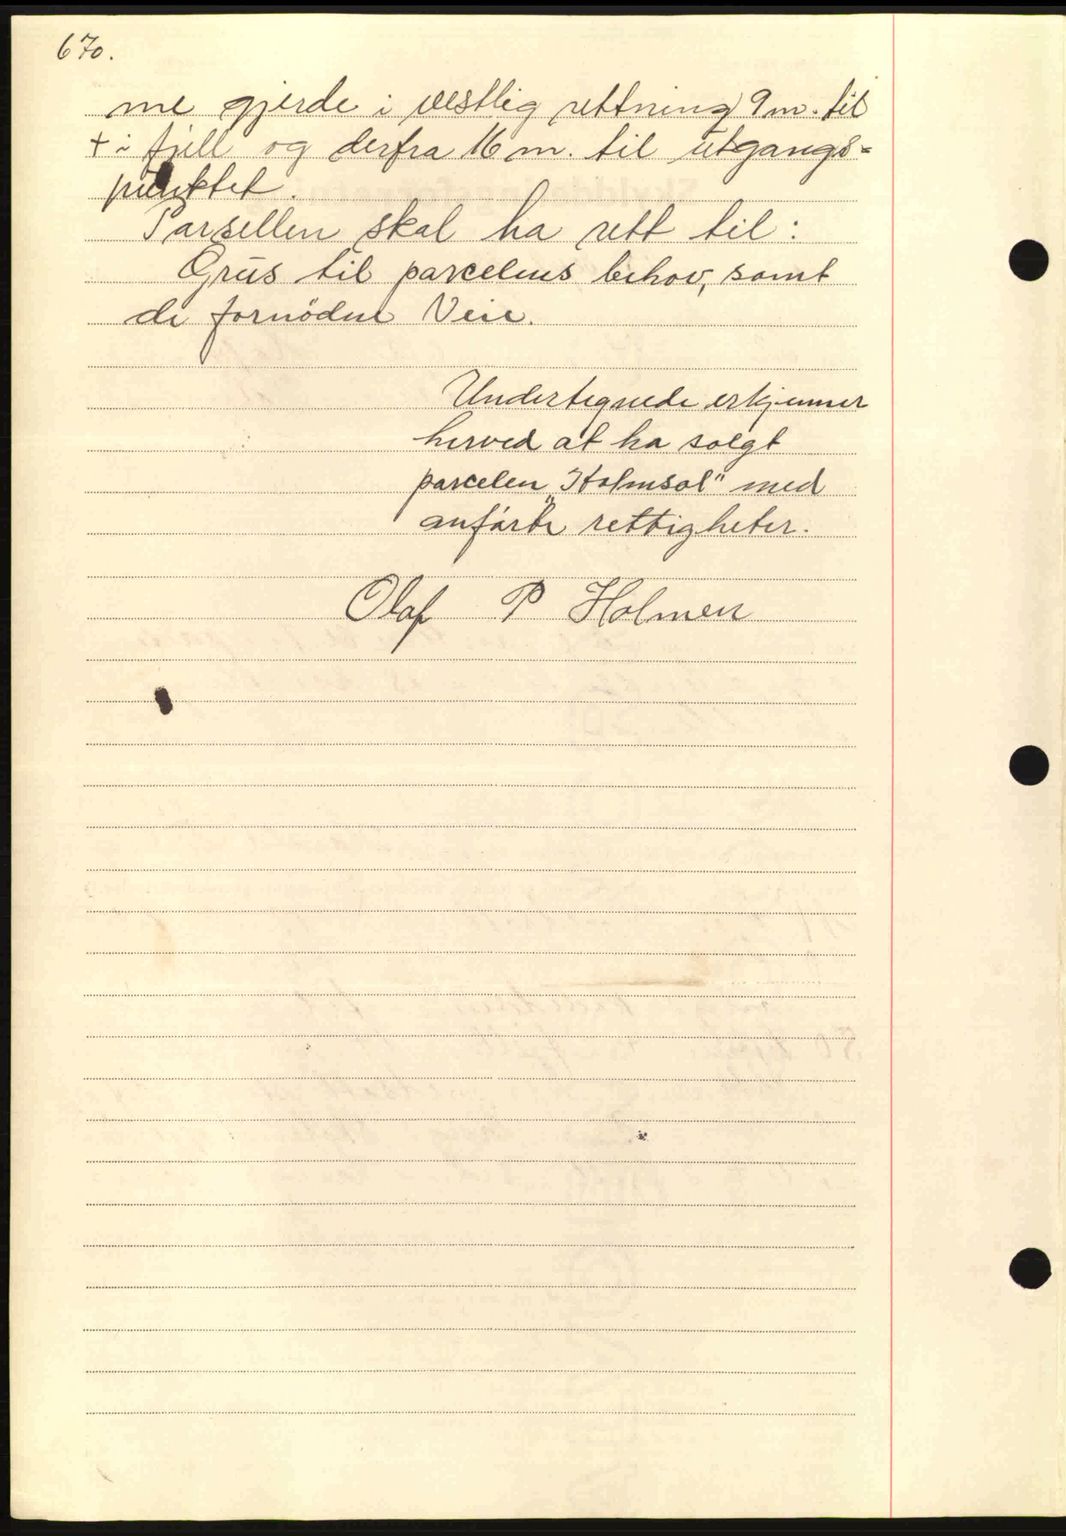 670.
me gjerde i vestlig rettning 9 m. til
+ i fjell og derfra 16 m. til utgangs=
punktet.
Parsellen skal ha rett til:
Grus til parcelens behov, samt
de fornödne Veie.
Undertegnede erkjenner
herved at ha solgt
parcelen "Holmsol" med
anförte rettigheter.
Olaf P Holmen